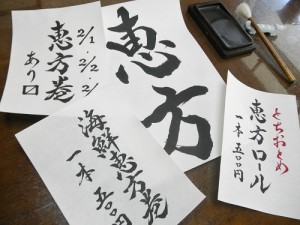 2/1・2/2・2/3
恵方巻
あり〼
恵方
海鮮恵方巻
一本 五〇〇円
とちおとめ
恵方ロール
一本 五〇〇円